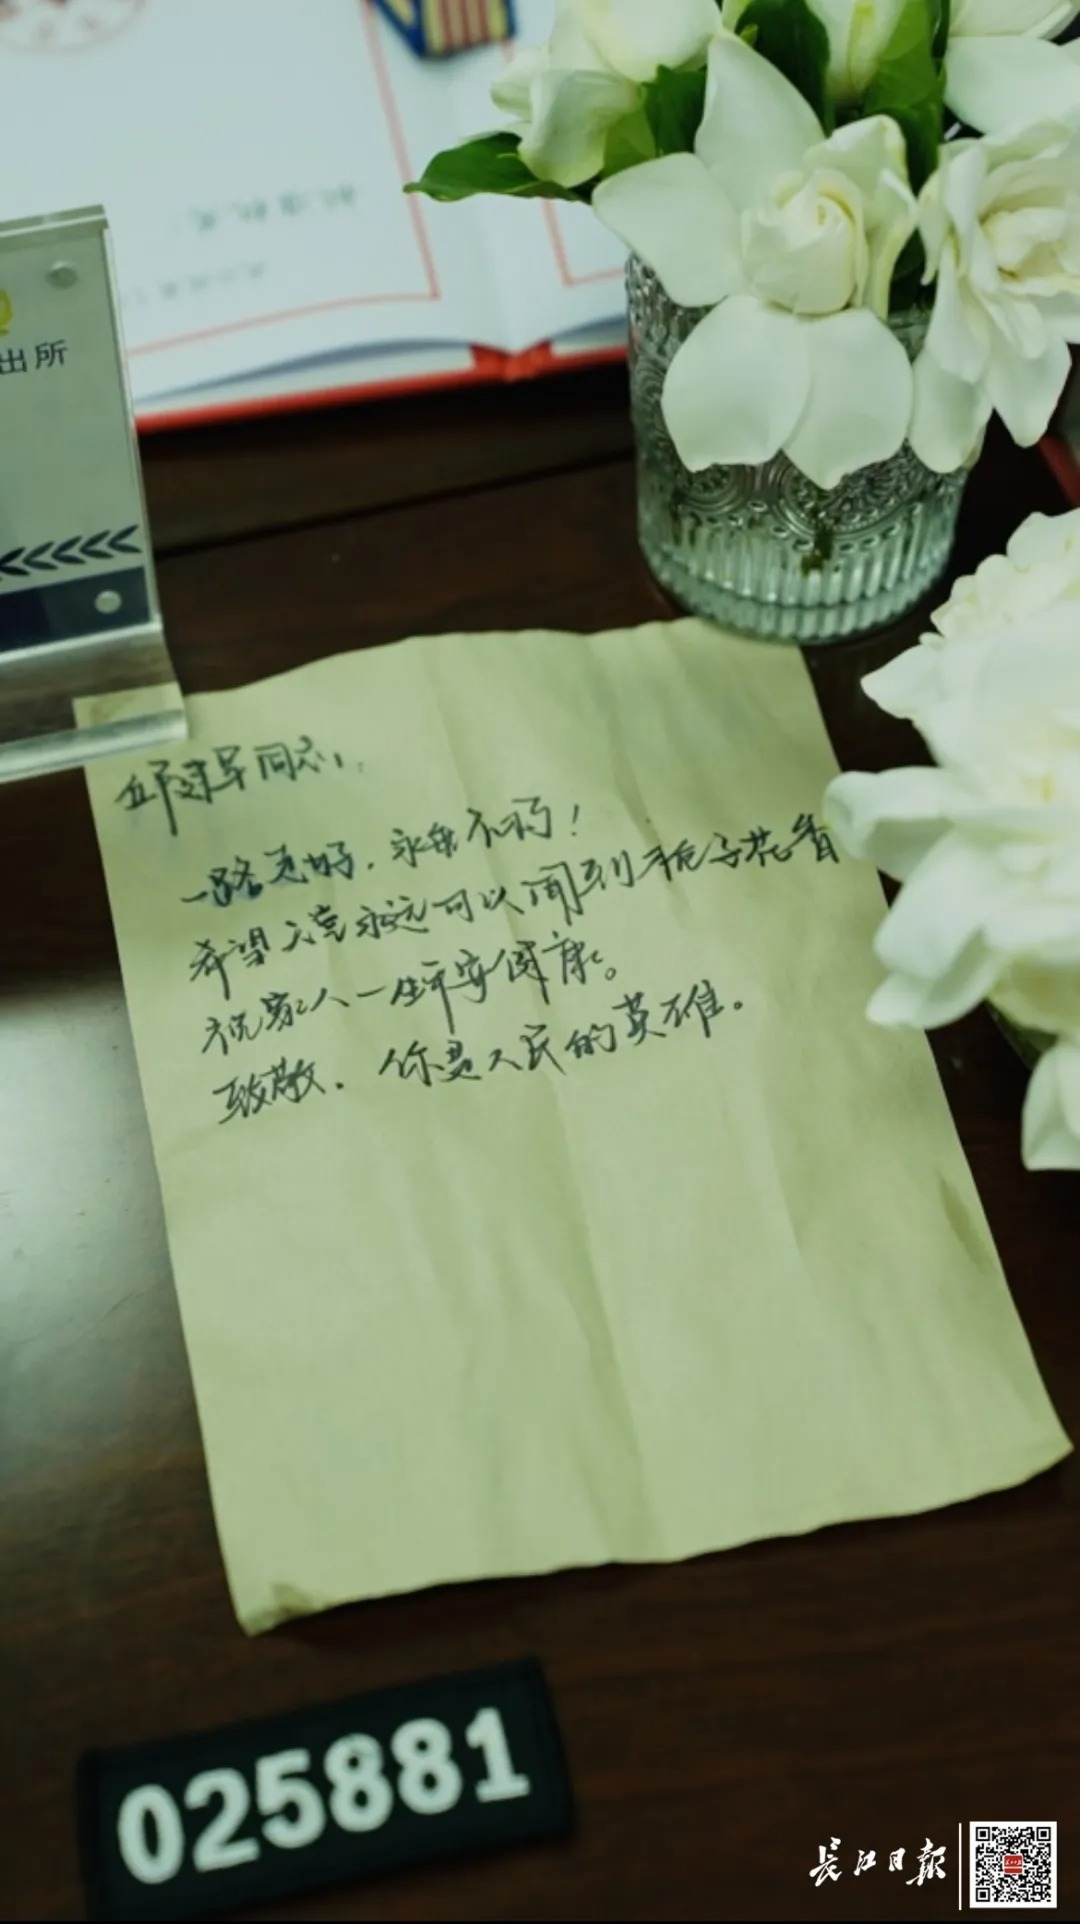 出所
邱建军同志:
一路走好，永垂不朽！
希望天堂永远可以闻到栀子花香
祝家人一生平安健康。
致敬，你是人民的英雄。
025881
长江日报